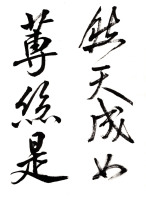 然天成如
蓴絲是